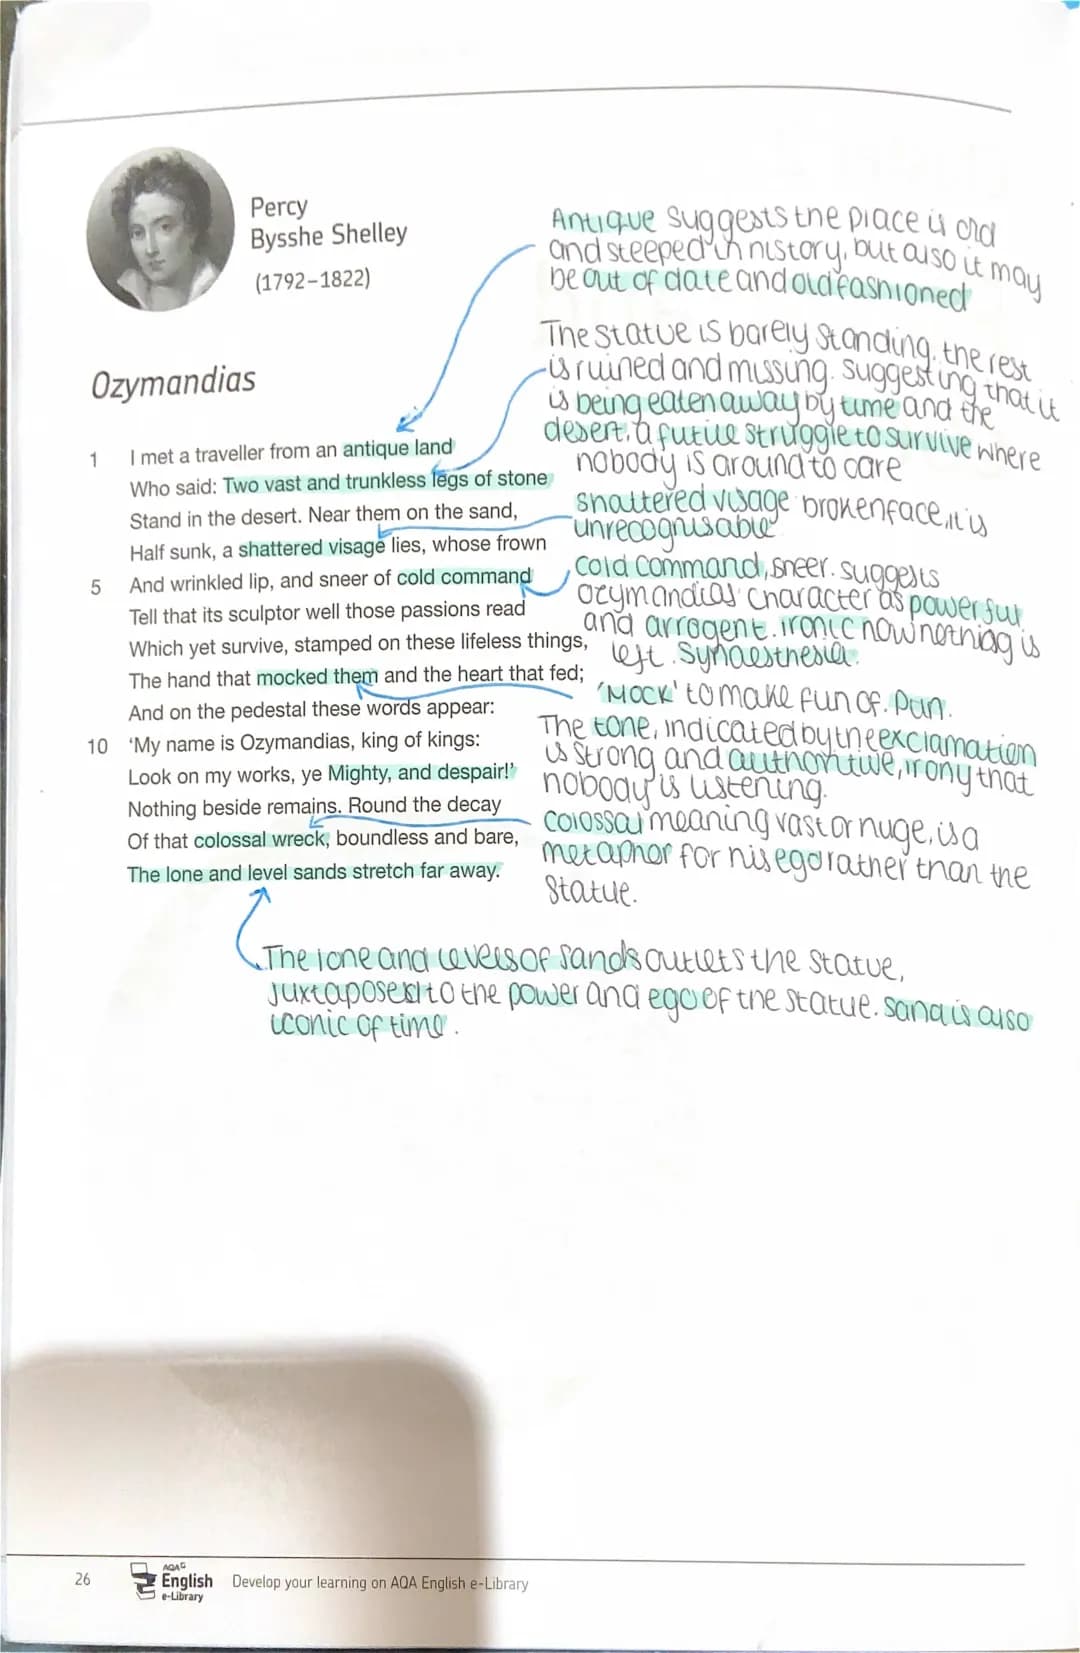 Percy
Bysshe Shelley
(1792–1822)
Ozymandias
1 I met a traveller from an antique land
Who said: Two vast and trunkless legs of stone
Stand in the desert. Near them on the sand,
Half sunk, a shattered visage lies, whose frown
5 And wrinkled lip, and sneer of cold command
Tell that its sculptor well those passions read
Which yet survive, stamped on these lifeless things,
The hand that mocked them and the heart that fed;
And on the pedestal these words appear:
10 ‘My name is Ozymandias, king of kings:
Look on my works, ye Mighty, and despair!’
Nothing beside remains. Round the decay
Of that colossal wreck, boundless and bare,
The lone and level sands stretch far away.
Antique suggests the place is old
and steeped in history, but also it may
be out of date and old fashioned
The statue is barely standing, the rest
is ruined and missing. suggesting that it
is being eaten away by time and the
desert. a futile struggle to survive where
nobody is around to care
shattered visage brokenface, it is
unrecognisable
cold command, sneer. suggests
ozymandias' character as powerful
and arrogent. ironic now nothing is
left. Synaesthesia.
'MOCK' to make fun of. Pun.
The tone, indicated by the exclamation
is strong and authoritive, irony that
nobody is listening.
colossal meaning vast or huge, is a
metaphor for his ego rather than the
Statue.
The lone and levels of sands outlets the statue,
juxtaposed to the power and ego of the statue. sand is also
iconic of time.
26
AQA
English
e-Library
Develop your learning on AQA English e-Library